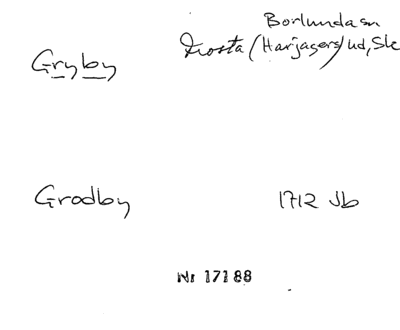 Borlunda sn
Gryby Frosta (Harjagers) hd, Sk
Grodby 1712 Jb
Nr 17188